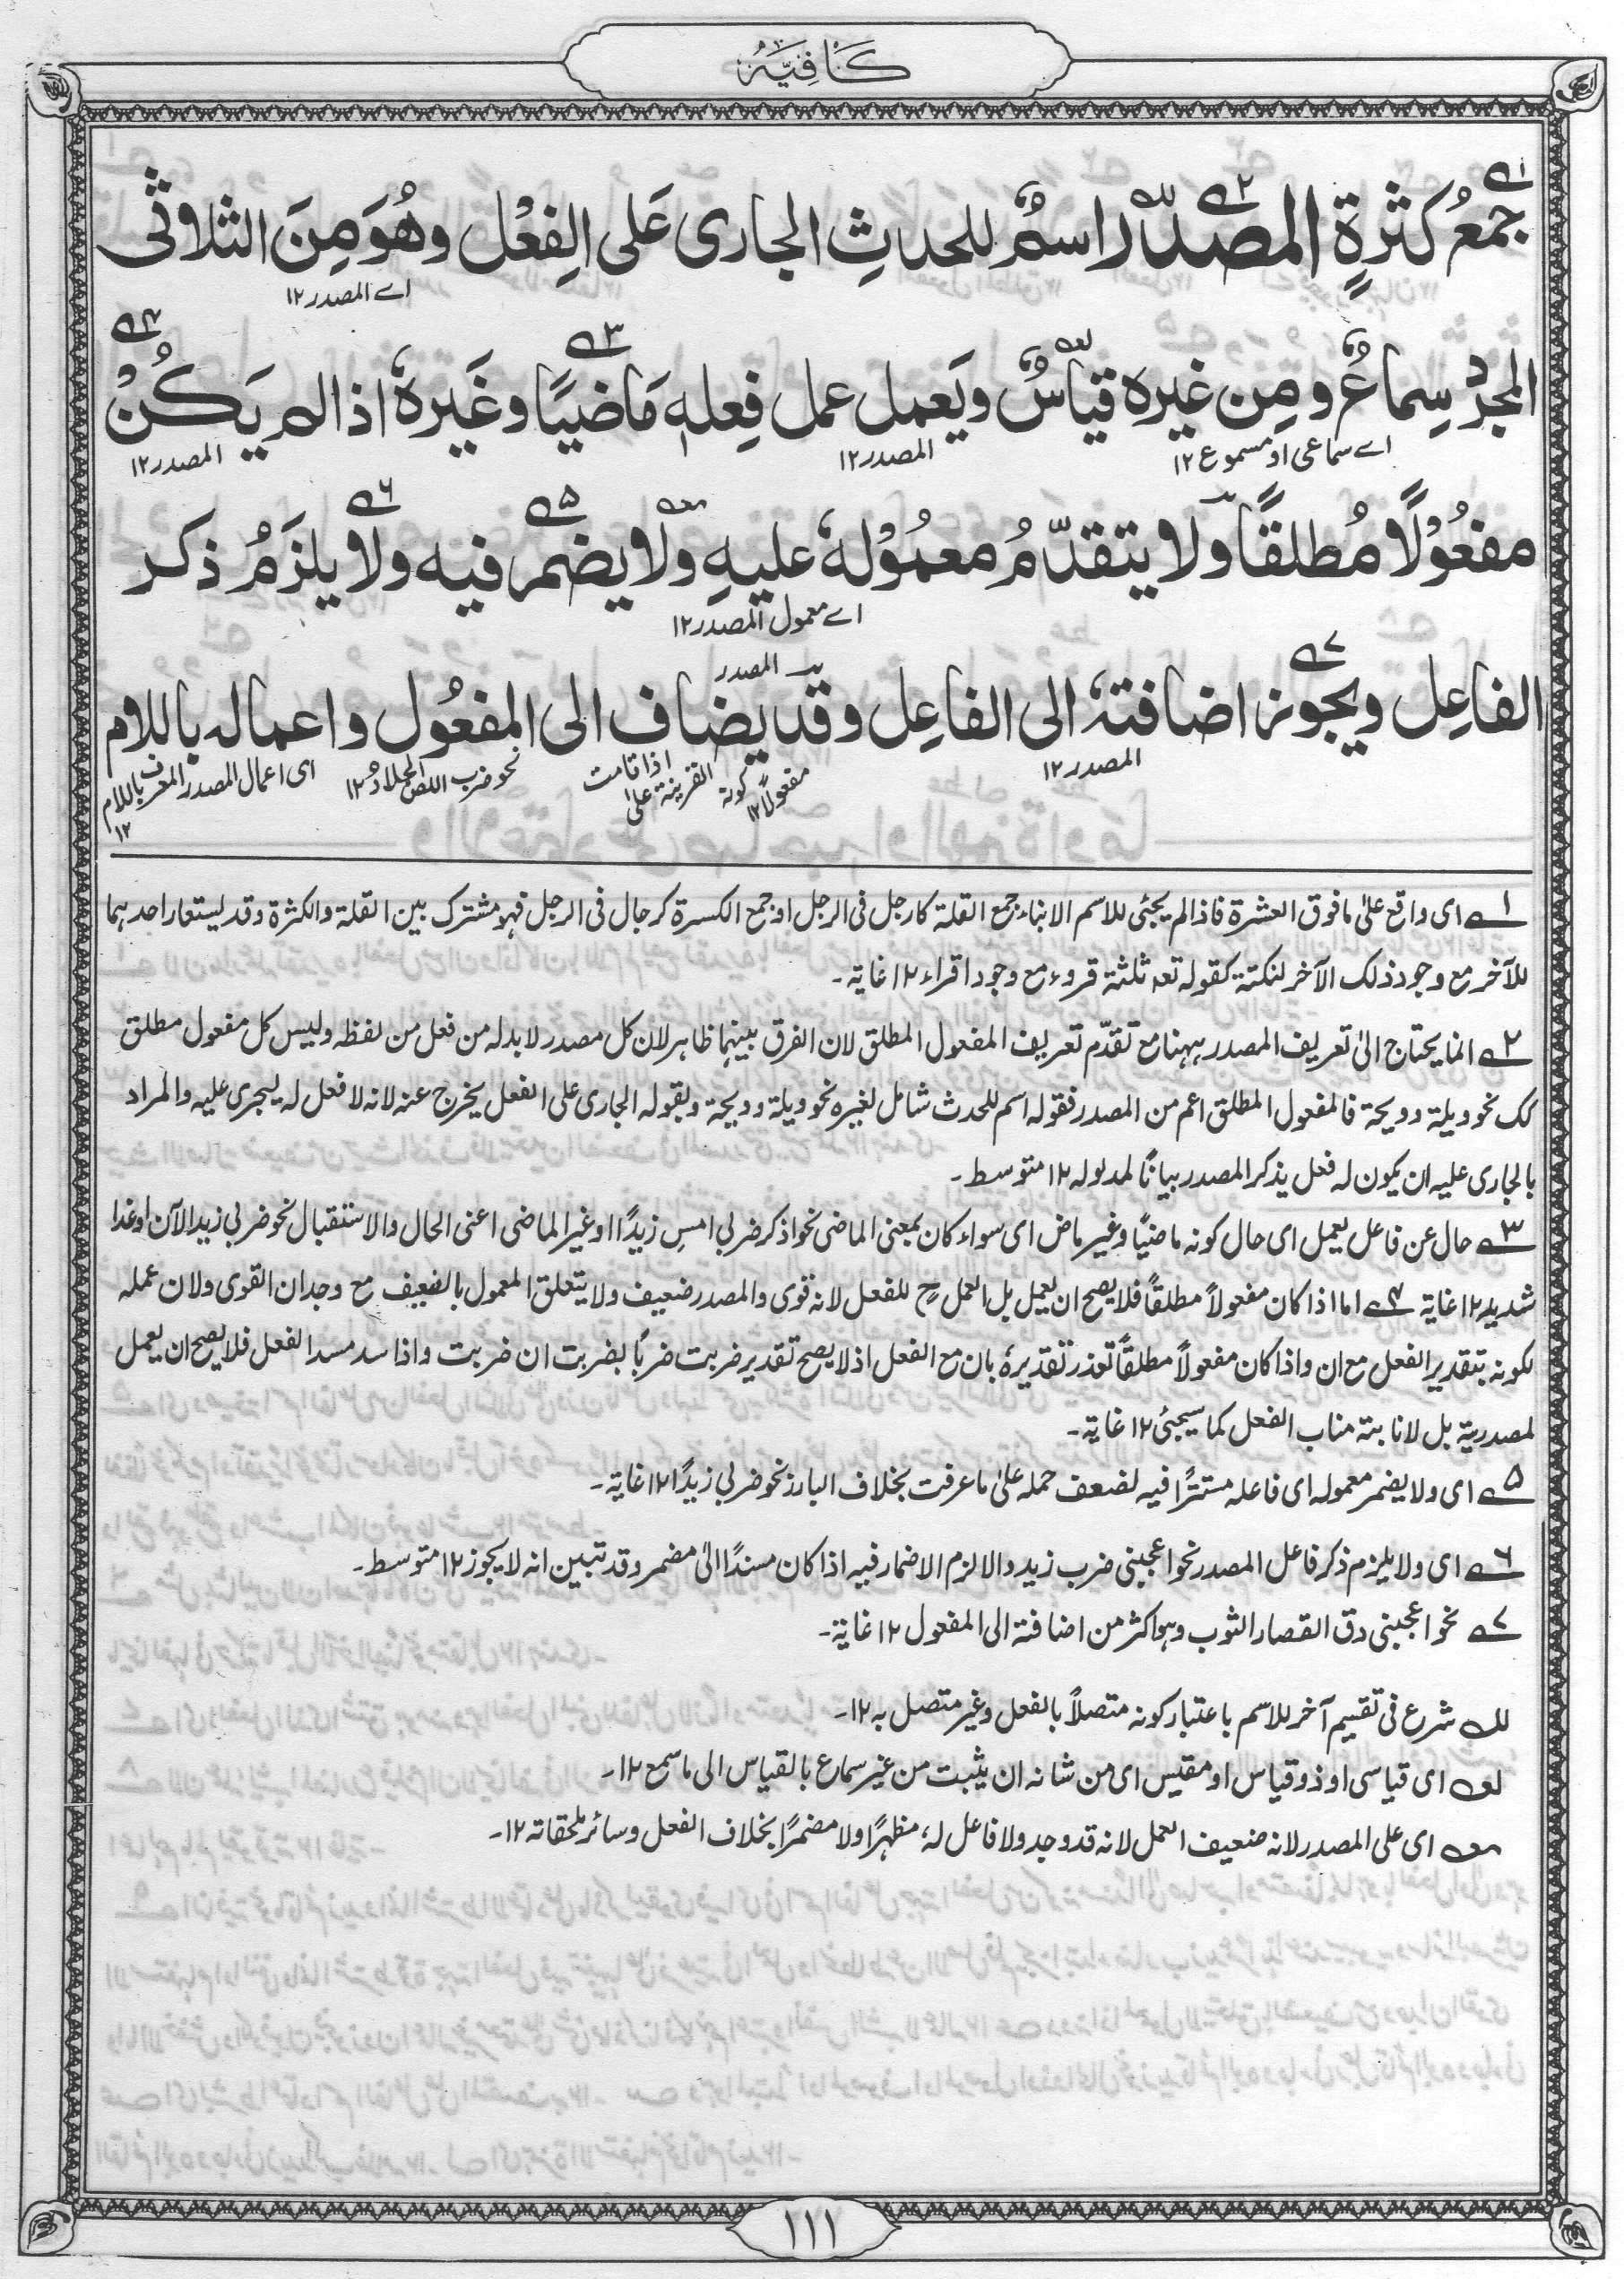 كَافِيَهْ
جمعُ كثرةٍ المصدر اسمٌ للحدثِ الجاری عَلی الِفعْل وهُوَ مِنَ الثلاثی
اے المصدر ١٢
المجرّد سِماعٌ ومِن غيره قياسٌ ويَعمل عمل فِعلهٖ مَاضيًا وغَيرهٗ اذا لم يَكُنْ
اے سماعی او مسموع ١٢ المصدر ١٢ المصدر ١٢
مفعُوْلًا مُطلقًا ولا يتقدّمُ معمُوْلهٗ عليهِ ولا يضمر فيه ولا يلزَمُ ذكر
اے معمول المصدر ١٢
الفاعِل ويجوز اضافتهٗ الی الفاعِل وقد يضاف الی المفعُول واعماله باللام
المصدر ١٢ المصدر اذا قامت القرينة علیٰ كونه مفعولاً ١٢ نحو ضرب اللص الجلاد ١٢ ای اعمال المصدر المعرف باللام ١٢
١ ای واقع علیٰ ما فوق العشرة فاذا لم يجئی للاسم الا بناء جمع القلة كارجل فی الرجل او جمع الكسرة كرجال فی الرجل فهو مشترك بين القلة والكثرة وقد يستعار احدهما
للآخر مع وجود ذلك الآخر لنكتة كقوله تعـ ثلثة قروء مع وجود اقراء ١٢ غاية۔
٢ انما يحتاج الیٰ تعريف المصدر ههنا مع تقدّم تعريف المفعول المطلق لان الفرق بينهما ظاهر لان كل مصدر لا بد له من فعل من لفظه وليس كل مفعول مطلق
كك نحو ويلة وويحة فالمفعول المطلق اعم من المصدر فقوله اسم للحدث شامل لغيره نحو ويلة وويحة وبقوله الجاری علی الفعل يخرج عنه لانه لا فعل له ليجری عليه والمراد
بالجاری عليه ان يكون له فعل يذكر المصدر بيانًا لمدلوله ١٢ متوسط۔
٣ حال عن فاعل يعمل ای حال كونه ماضيًا وغير ماض ای سواء كان بمعنی الماضی نحو اذكر ضربی امسِ زيدًا او غير الماضی اعنی الحال والاستقبال نحو ضربی زيدا الآن او غدا
شديد ١٢ غاية ٤ اما اذا كان مفعولاً مطلقاً فلا يصح ان يعمل بل العمل ح للفعل لانه قوی والمصدر ضعيف ولا يتعلق المعمول بالضعيف مع وجدان القوی ولان عمله
لكونه بتقدير الفعل مع ان واذا كان مفعولاً مطلقاً تعذر تقديرهٗ بان مع الفعل اذ لا يصح تقدير ضربت ضربًا بضربت ان ضربت واذا سد مسد الفعل فلا يصح ان يعمل
لمصدرية بل لانابته مناب الفعل كما سيجئی ١٢ غاية۔
٥ ای ولا يضمر معموله ای فاعله مستترًا فيه لضعف حمله علیٰ ما عرفت بخلاف البارز نحو ضربی زيدًا ١٢ غاية۔
٦ ای ولا يلزم ذكر فاعل المصدر نحو اعجبنی ضرب زيد والا لزم الاضمار فيه اذا كان مسندًا الیٰ مضمر وقد تبين انه لا يجوز ١٢ متوسط۔
٧ نحو اعجبنی دق القصار الثوب وهو اكثر من اضافته الی المفعول ١٢ غاية۔
لـه شرع فی تقسيم آخر للاسم باعتبار كونه متصلاً بالفعل وغير متصل به ١٢۔
لعه ای قياسی او ذو قياس او مقيس ای من شانه ان يثبت من غير سماع بالقياس الی ما سمع ١٢۔
معه ای علی المصدر لانه ضعيف العمل لانه قد وجد ولا فاعل لهٗ مظهرًا ولا مضمرًا بخلاف الفعل وسائر ملحقاته ١٢۔
١١١